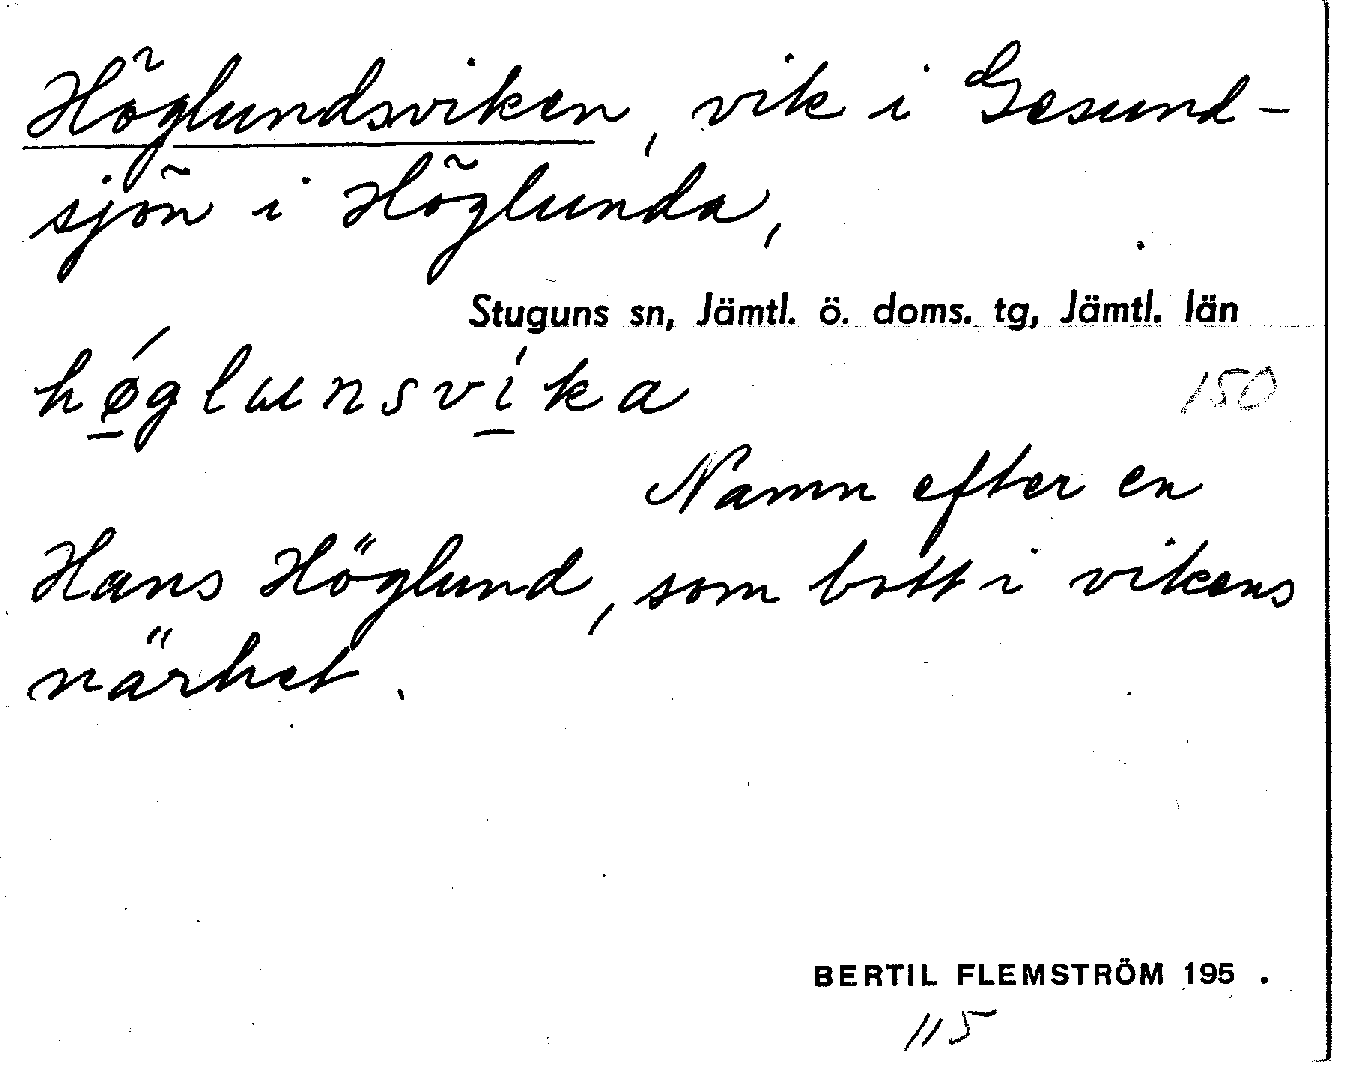 Höglundsviken, vik i Gesund-
sjön i Höglunda,
Stuguns sn, Jämtl. ö. doms. tg, Jämtl. län
hǿ̲glɯnsví̲ka
150
Namn efter en
Hans Höglund, som bott i vikens
närhet.
BERTIL FLEMSTRÖM 195 .
115